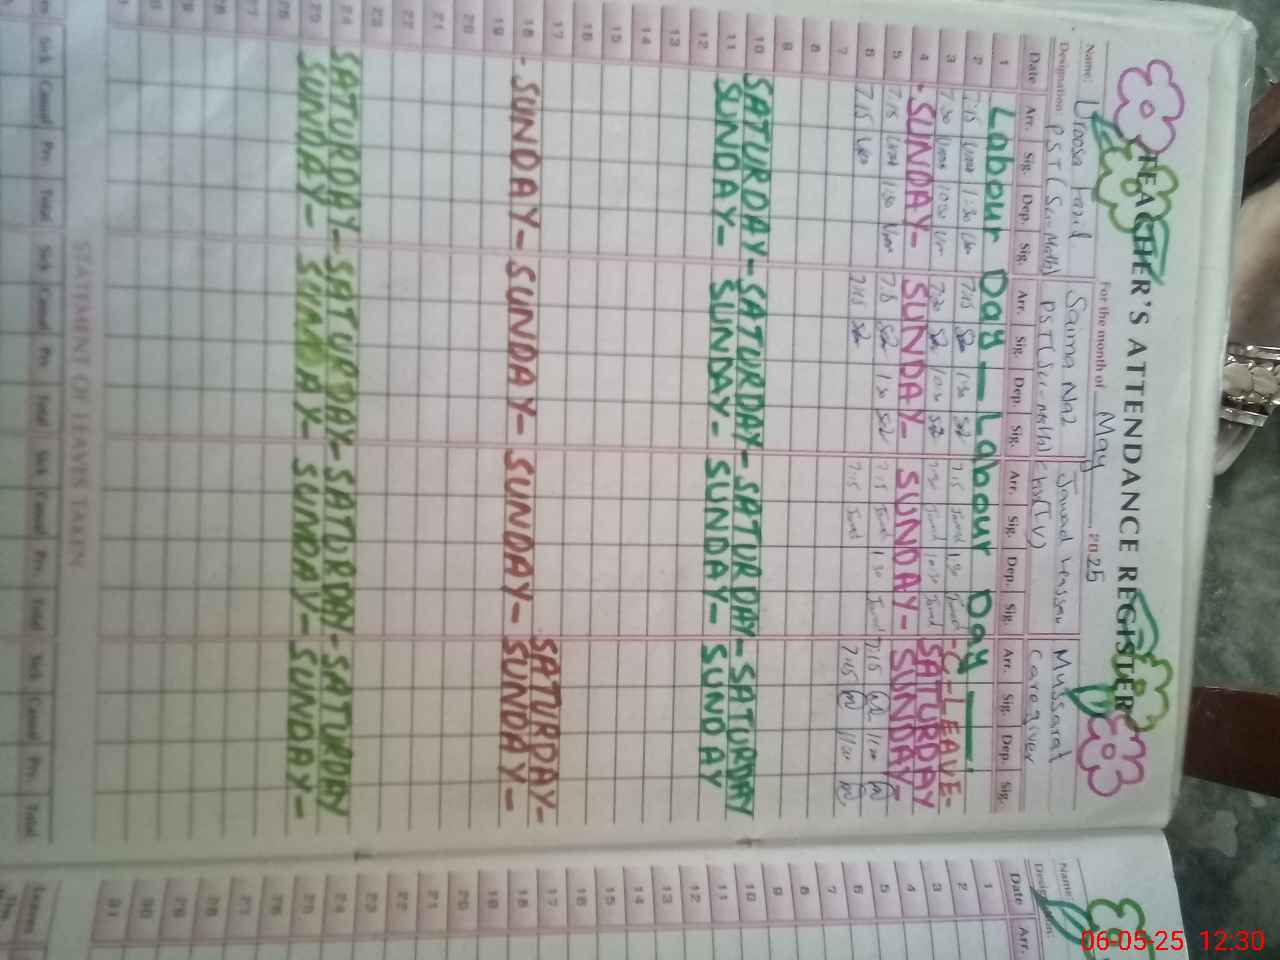 TEACHER'S ATTENDANCE REGISTER
For the month of May 2025
Name: Uroosa Saima Naz Jawad Hassan Mussarat
Designation: PST (Sci-Math) PST (Sci-Math) caregiver
Date Arr. Sig. Dep. Sig. Arr. Sig. Dep. Sig. Arr. Sig. Dep. Sig. Arr. Sig. Dep. Sig.
1 Labour Day — Labour Day —
2 7:15 1:30 7:15 1:30 7:15 1:30 - C-LEAVE-
3 7:30 10:30 7:30 10:30 7:30 10:30 SATURDAY
4 - SUNDAY - SUNDAY - SUNDAY - SUNDAY -
5 7:15 1:30 7:15 1:30 7:15 1:30 7:15 11:30
6 7:15 7:15 7:15 7:15 11:30
7
8
9
10 SATURDAY - SATURDAY - SATURDAY - SATURDAY
11 SUNDAY - SUNDAY - SUNDAY - SUNDAY
12
13
14
15
16
17 SATURDAY -
18 - SUNDAY - SUNDAY - SUNDAY - SUNDAY -
19
20
21
22
23
24 SATURDAY - SATURDAY - SATURDAY - SATURDAY
25 SUNDAY - SUNDAY - SUNDAY - SUNDAY -
26
27
28
29
30
31
STATEMENT OF LEAVES TAKEN
Sick Casual Prv. Total Sick Casual Prv. Total Sick Casual Prv. Total Sick Casual Prv. Total
Name:
Designation:
Date Arr.
1
2
3
4
5
6
7
8
9
10
11
12
13
14
15
16
17
18
19
20
21
22
23
24
25
26
27
28
29
30
31
06-05-25 12:30